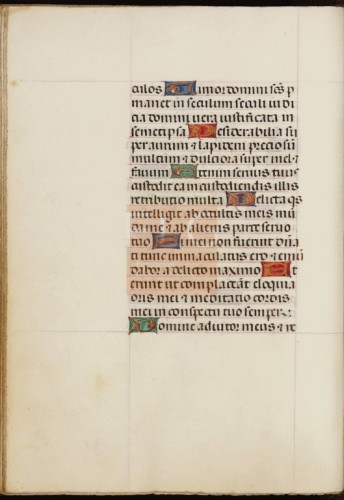 culos Timor domini scs p
manet in seculum seculi iudi
cia domini uera iustificata in
semetipsa Desiderabilia su
per aurum & lapidem preciosu
multum & dulciora super mel &
fauum Etenim seruus tuus
custodit ea in custodiendis illis
retributio multa Delicta qs
intelligit ab occultis meis mu
da me & ab alienis parce seruo
tuo Si mei non fuerunt dna
ti tunc immaculatus ero & emu
dabor a delicto maximo Et
erunt ut complaceat eloquia
oris mei & meditatio cordis
mei in conspectu tuo semper
Domine adiutor meus & re